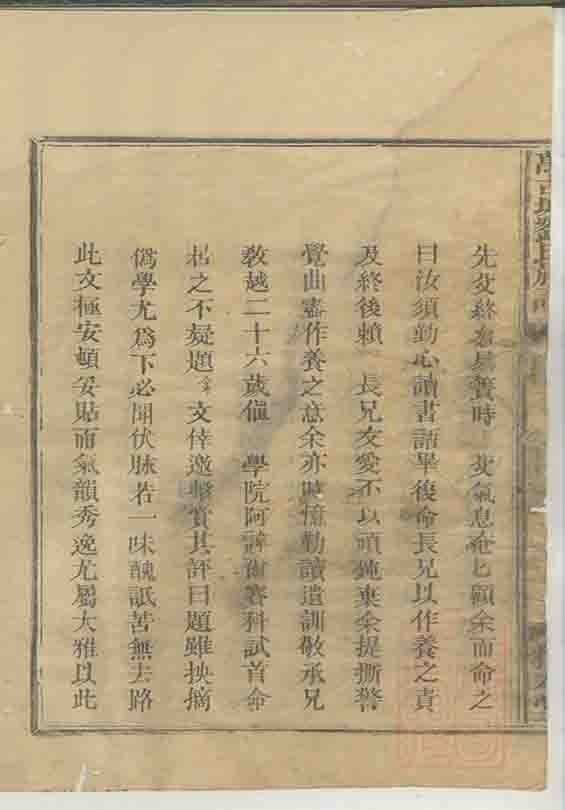 先父終於易簀時 父氣息奄匕顧余而命之
曰汝須勤心讀書語畢復命長兄以作養之責
及終後賴 長兄友愛不以頑鈍棄余提撕警
覺曲盡作養之意余亦時憶勤讀遺訓敬承兄
敎越二十六歲值 學院阿 科試首命
君之不疑題 文倖邀擊賞其評曰題雖抉摘
僞學尤爲下必聞伏脉若一味醜詆苦無去路
此文極安頓妥貼而氣韻秀逸尤屬大雅以此